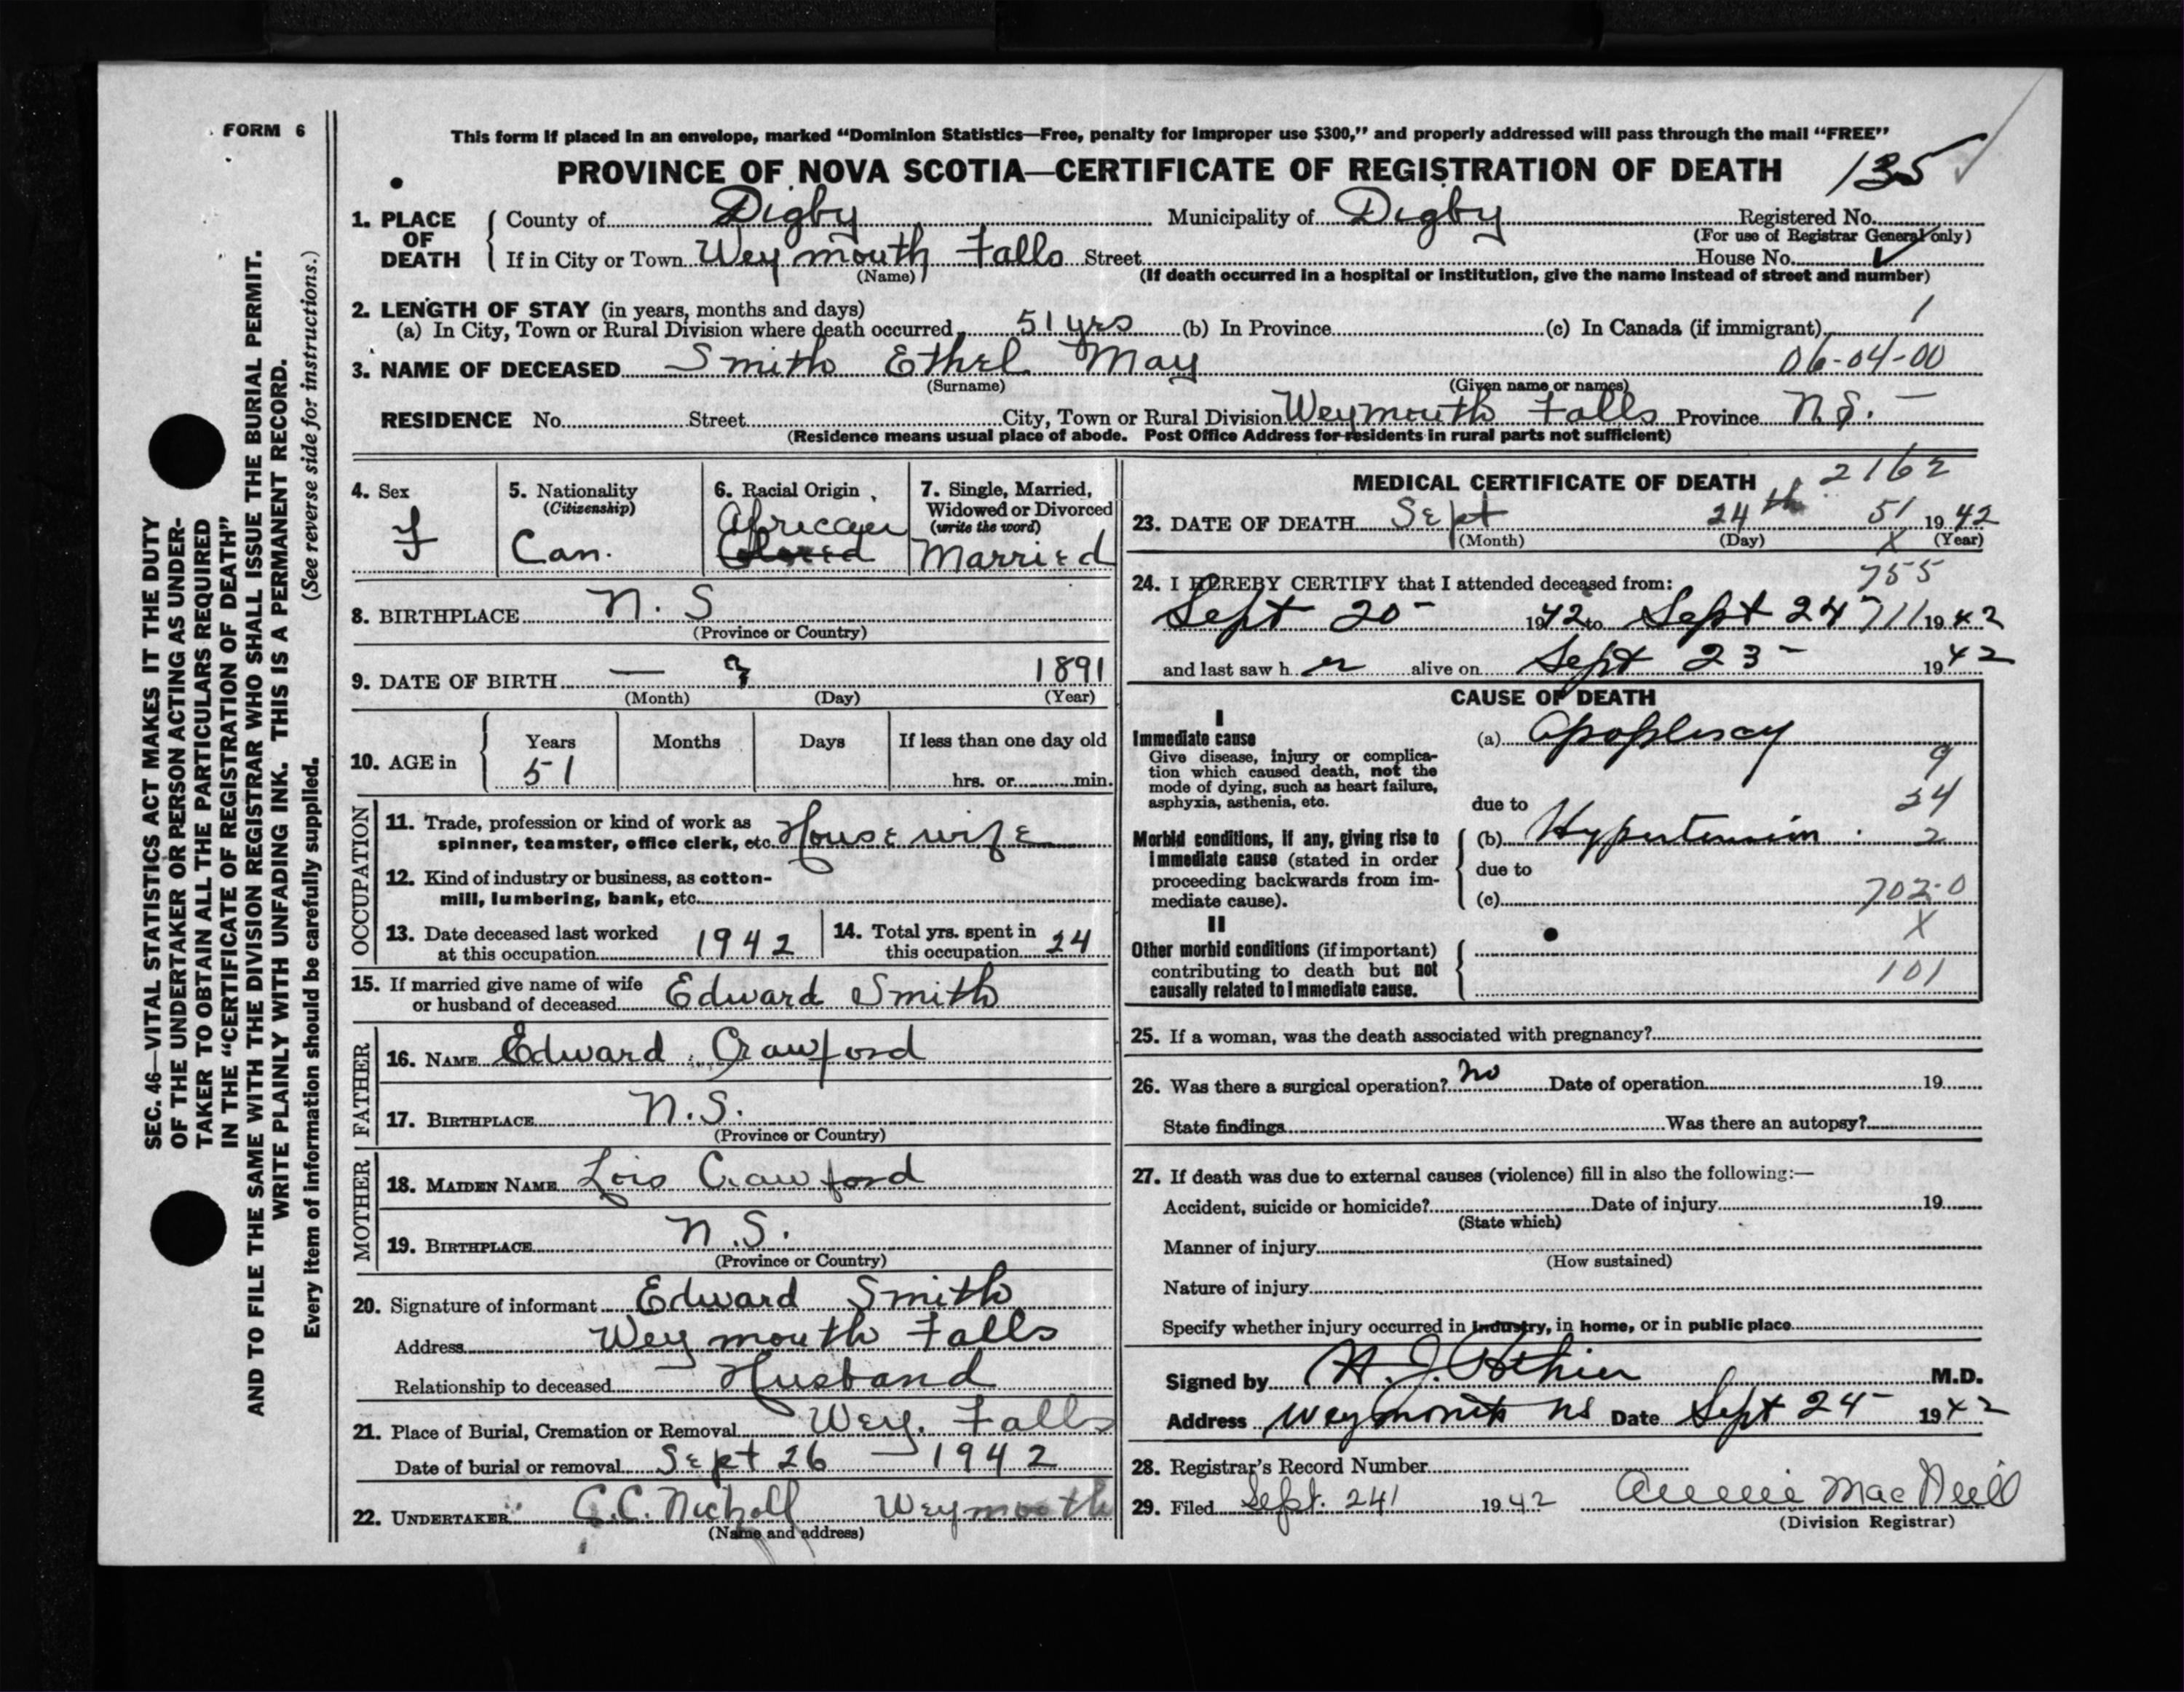 FORM 6
This form if placed in an envelope, marked “Dominion Statistics—Free, penalty for improper use $300,” and properly addressed will pass through the mail “FREE”
PROVINCE OF NOVA SCOTIA—CERTIFICATE OF REGISTRATION OF DEATH 135
1. PLACE OF DEATH
County of Digby Municipality of Digby Registered No.
(For use of Registrar General only)
If in City or Town Weymouth Falls Street House No.
(Name) (If death occurred in a hospital or institution, give the name instead of street and number)
2. LENGTH OF STAY (in years, months and days)
(a) In City, Town or Rural Division where death occurred 51 yrs (b) In Province (c) In Canada (if immigrant) 1
3. NAME OF DECEASED Smith Ethel May 06-04-00
(Surname) (Given name or names)
RESIDENCE No. Street City, Town or Rural Division Weymouth Falls Province N.S. —
(Residence means usual place of abode. Post Office Address for residents in rural parts not sufficient)
4. Sex
F
5. Nationality
(Citizenship)
Can.
6. Racial Origin
African
Colored
7. Single, Married,
Widowed or Divorced
(write the word)
Married
8. BIRTHPLACE N. S
(Province or Country)
9. DATE OF BIRTH — ? 1891
(Month) (Day) (Year)
10. AGE in
Years Months Days If less than one day old
51 hrs. or min.
OCCUPATION
11. Trade, profession or kind of work as
spinner, teamster, office clerk, etc. Housewife
12. Kind of industry or business, as cotton-
mill, lumbering, bank, etc.
13. Date deceased last worked
at this occupation 1942
14. Total yrs. spent in
this occupation 24
15. If married give name of wife
or husband of deceased Edward Smith
FATHER
16. NAME Edward Crawford
17. BIRTHPLACE N.S.
(Province or Country)
MOTHER
18. MAIDEN NAME Lois Crawford
19. BIRTHPLACE N.S.
(Province or Country)
20. Signature of informant Edward Smith
Address Weymouth Falls
Relationship to deceased Husband
21. Place of Burial, Cremation or Removal Wey. Falls
Date of burial or removal Sept 26 — 1942
22. UNDERTAKER C.C. Nicholl Weymouth
(Name and address)
MEDICAL CERTIFICATE OF DEATH 2162
23. DATE OF DEATH Sept 24th 51 1942
(Month) (Day) X (Year)
24. I HEREBY CERTIFY that I attended deceased from: 755
Sept 20 - 1942 to Sept 24 711 1942
and last saw h er alive on Sept 23 - 1942
CAUSE OF DEATH
I
Immediate cause (a) Apoplexcy
Give disease, injury or complica-
tion which caused death, not the
mode of dying, such as heart failure,
asphyxia, asthenia, etc.
9
24
due to
Morbid conditions, if any, giving rise to
immediate cause (stated in order
proceeding backwards from im-
mediate cause).
(b) Hypertension 2
due to
(c) 702-0
X
II
Other morbid conditions (if important)
contributing to death but not
causally related to immediate cause.
101
25. If a woman, was the death associated with pregnancy?
26. Was there a surgical operation? No Date of operation 19
State findings Was there an autopsy?
27. If death was due to external causes (violence) fill in also the following:—
Accident, suicide or homicide? Date of injury 19
(State which)
Manner of injury
(How sustained)
Nature of injury
Specify whether injury occurred in industry, in home, or in public place
Signed by H. J. Pothier M.D.
Address Weymouth NS Date Sept 24 - 1942
28. Registrar's Record Number
29. Filed Sept. 24 1942 Annie MacNeill
(Division Registrar)
SEC. 46—VITAL STATISTICS ACT MAKES IT THE DUTY
OF THE UNDERTAKER OR PERSON ACTING AS UNDER-
TAKER TO OBTAIN ALL THE PARTICULARS REQUIRED
IN THE “CERTIFICATE OF REGISTRATION OF DEATH”
AND TO FILE THE SAME WITH THE DIVISION REGISTRAR WHO SHALL ISSUE THE BURIAL PERMIT.
WRITE PLAINLY WITH UNFADING INK. THIS IS A PERMANENT RECORD.
Every item of information should be carefully supplied. (See reverse side for instructions.)